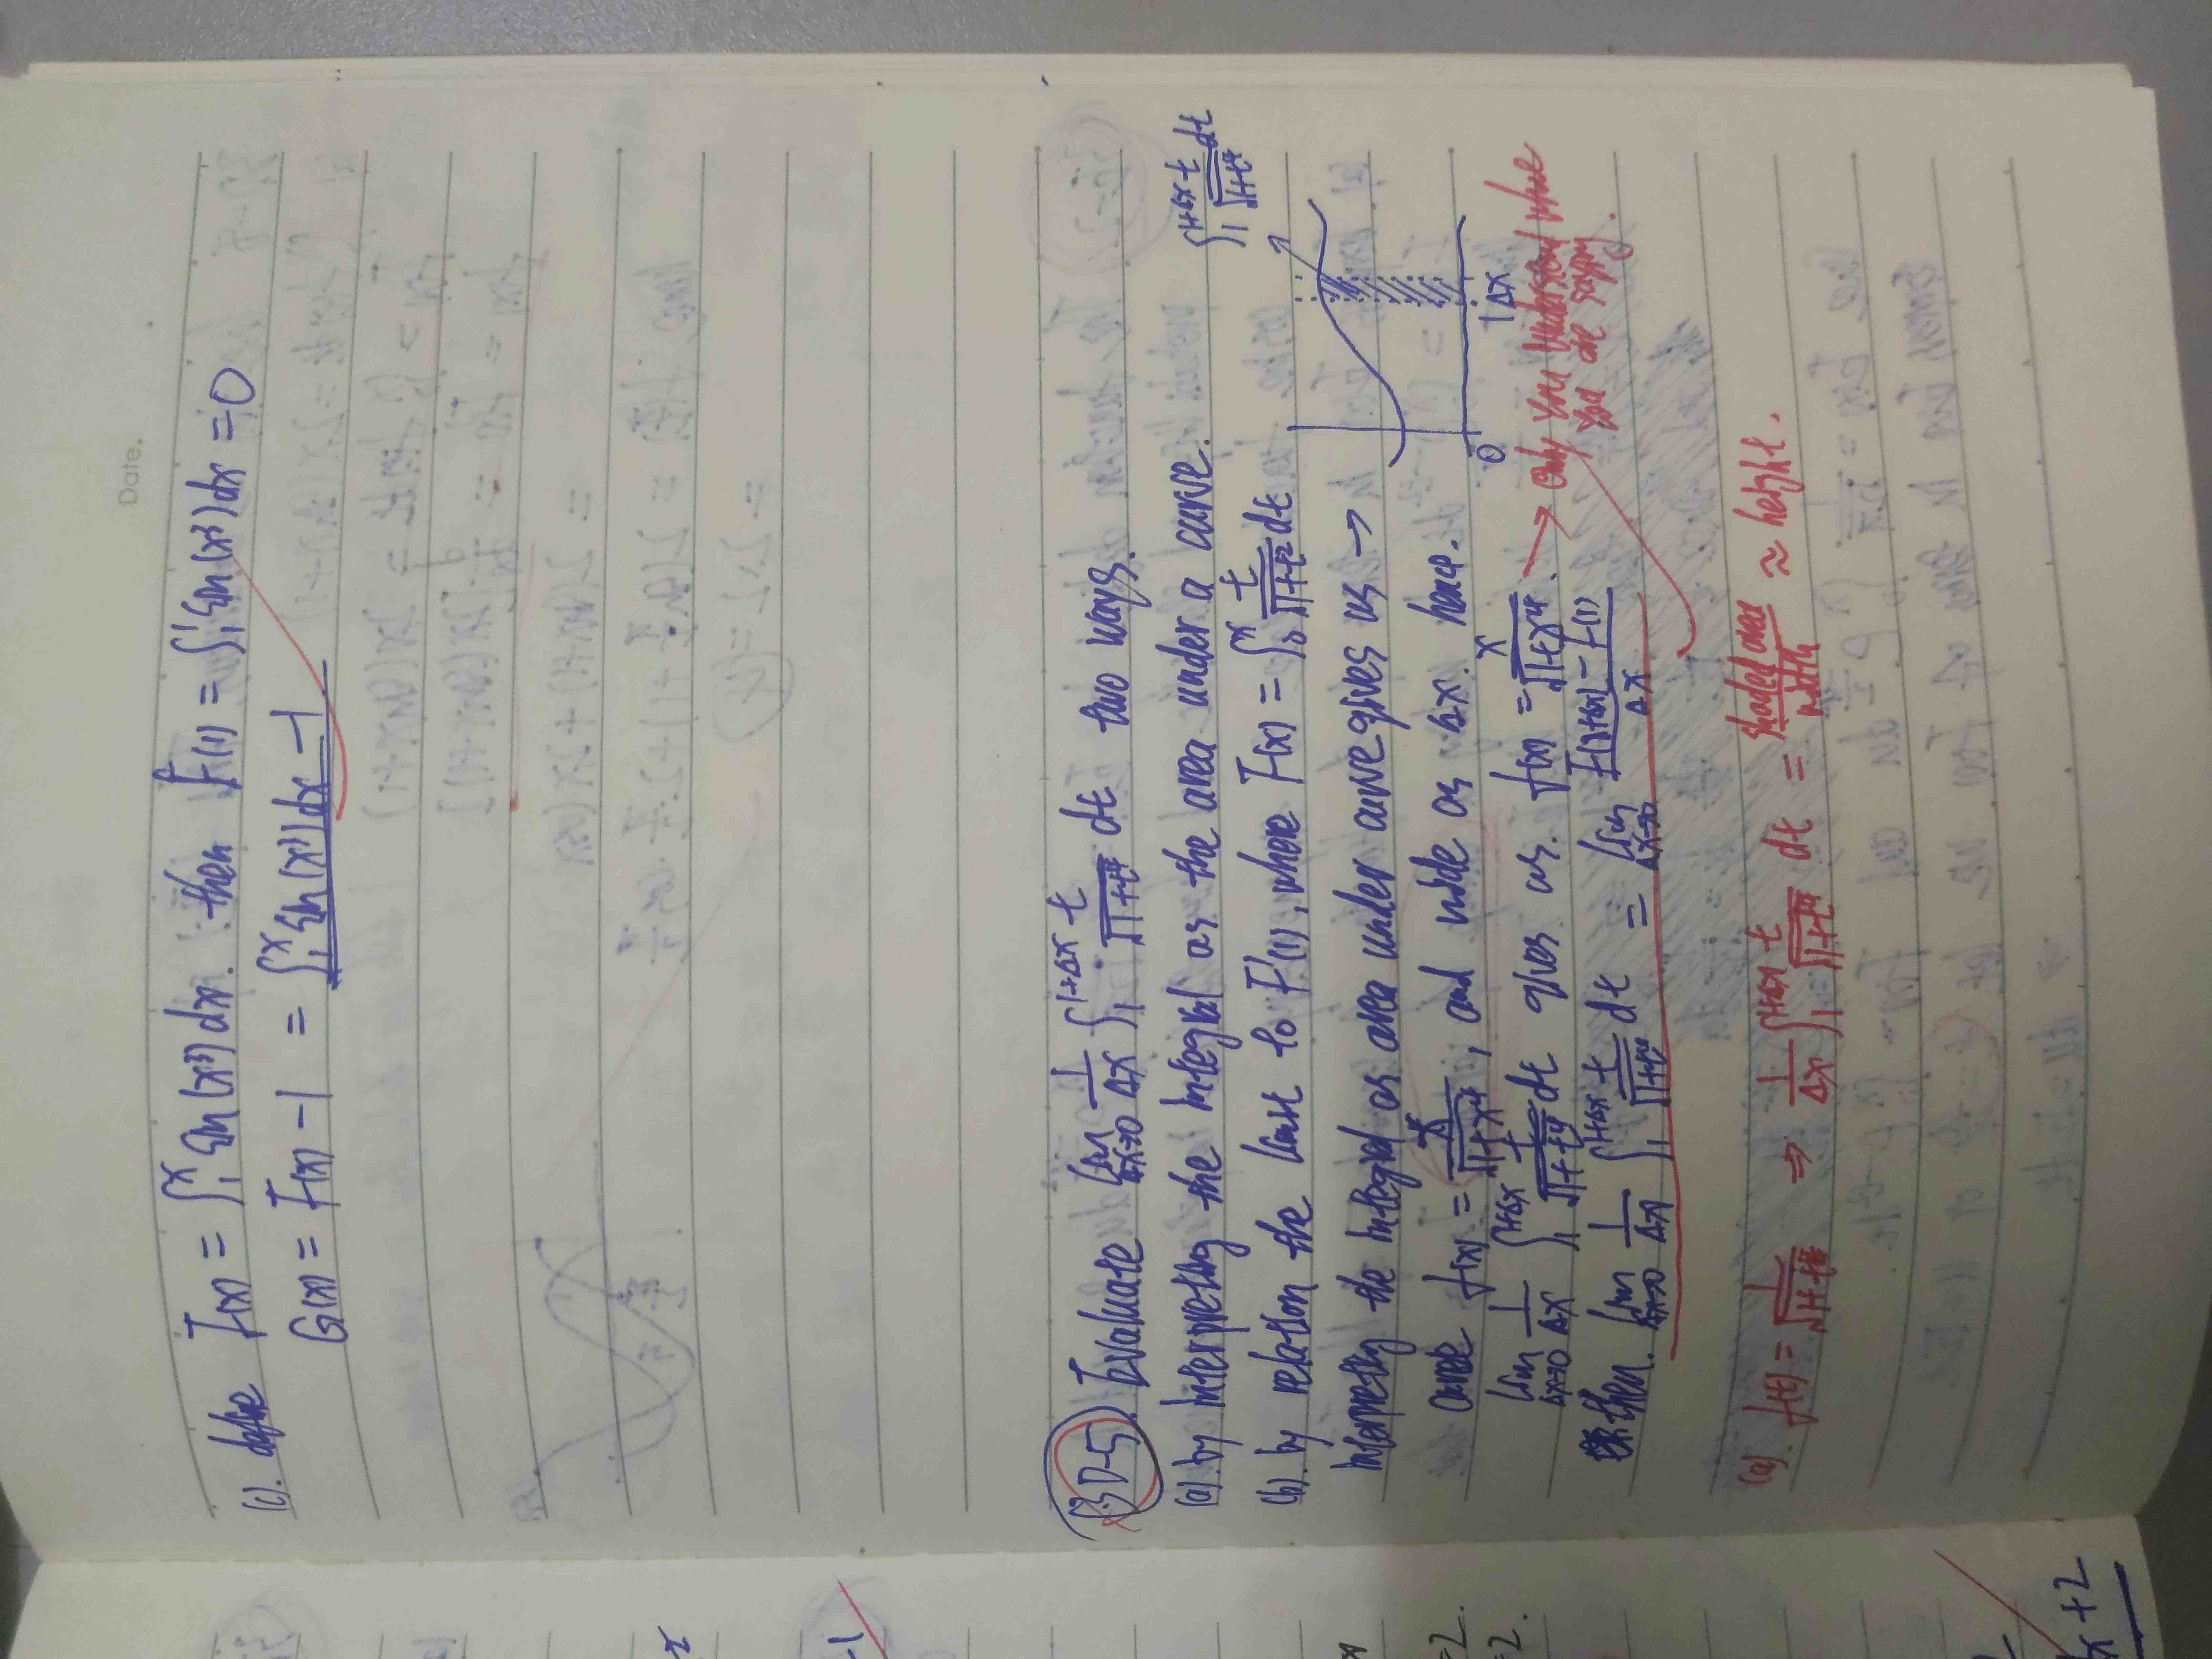 Date.
(c). define F(x) = ∫₁ˣ sin(x³) dx. then F(1) = ∫₁¹ sin(x³) dx = 0
G(x) = F(x) - 1 = ∫₁ˣ sin(x³) dx - 1
3D-5 Evaluate lim Δx→0 1/Δx ∫₁^(1+Δx) t/√(1+t⁴) dt two ways.
(a). by interpreting the integral as the area under a curve.
(b). by relation the limit to F'(1), where F(x) = ∫₀ˣ t/√(1+t²) dt
∫₁^(1+Δx) t/√(1+t⁴) dt
interpreting the integral as area under curve gives us →
0 1 Δx
curve f(x) = x/√(1+x⁴), and wide as Δx. hence.
lim Δx→0 1/Δx ∫₁^(1+Δx) t/√(1+t⁴) dt gives us. f(x) = x/√(1+x⁴). → only you understand what
you are saying.
then. lim Δx→0 1/Δx ∫₁^(1+Δx) t/√(1+t⁴) dt = lim Δx→0 F(1+Δx) - F(1)/Δx
(a). f(t) = 1/√(1+t⁴) ⇒ 1/Δx ∫₁^(1+Δx) t/√(1+t⁴) dt = shaded area/width ≈ height.
-1
=2.
=2.
x+2